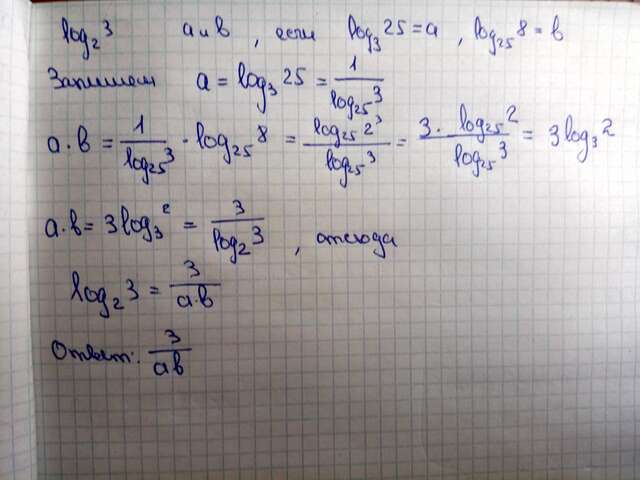 log₂3 a и b, если log₃25 = a, log₂₅8 = b
Запишем a = log₃25 = 1/log₂₅3
a·b = 1/log₂₅3 · log₂₅8 = log₂₅2³/log₂₅3 = 3·log₂₅2/log₂₅3 = 3log₃2
a·b = 3log₃2 = 3/log₂3, отсюда
log₂3 = 3/a·b
Ответ: 3/ab